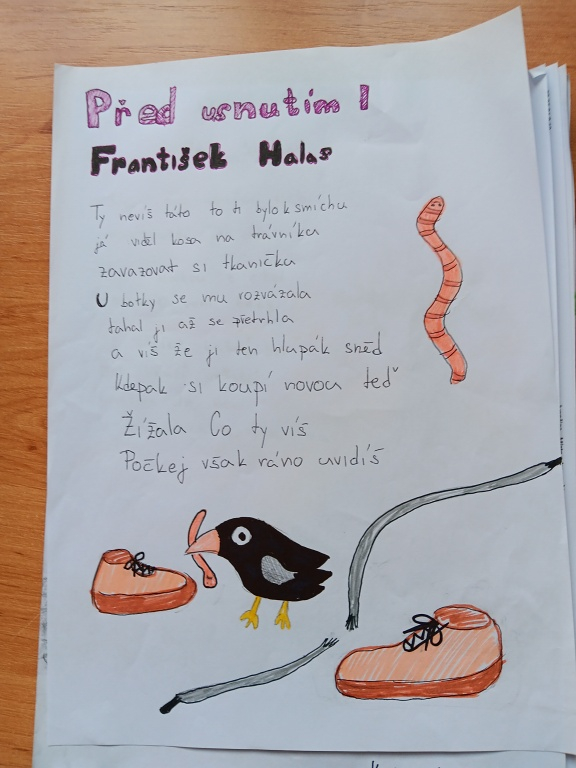 Před usnutím I
František Halas
Ty nevíš táto to ti bylo k smíchu
já viděl kosa na trávníku
zavazovat si tkaničku
U botky se mu rozvázala
tahal ji až se přetrhla
a víš že ji ten hlupák sněd
Kdepak si koupí novou teď
Žížala Co ty víš
Počkej však ráno uvidíš